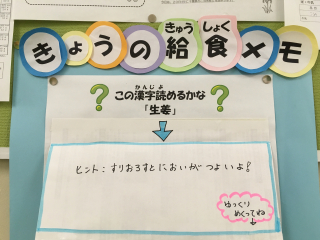 きょうの給食メモ
きゅう しょく
かんじ よ
この漢字読めるかな
「生姜」
ヒント：すりおろすとにおいがつよいよ！
ゆっくり
めくってね